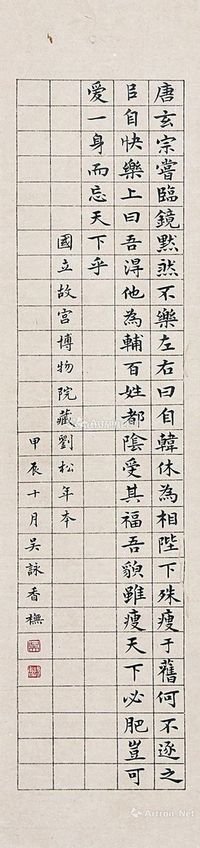 唐玄宗嘗臨鏡黙然不樂左右曰自韓休為相陛下殊瘦于舊何不逐之
自快樂上曰吾得他為輔百姓都陰受其福吾貌雖瘦天下必肥豈可
愛一身而忘天下乎
國立故宮博物院藏劉松年本
甲辰十月吳詠香橅
Artron.Net